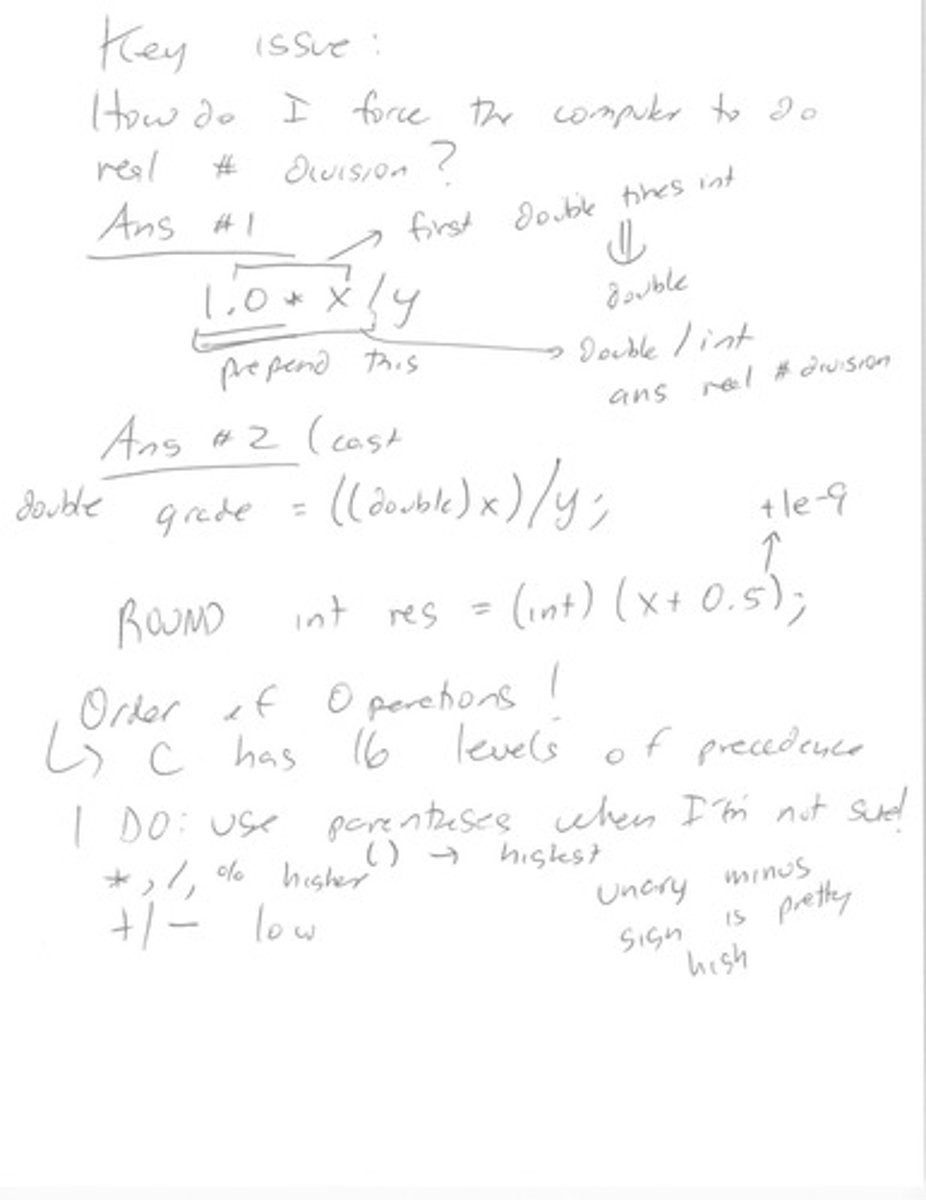 Key issue:
How do I force the computer to do
real # division?
Ans #1
first double times int
⇓
double
1.0 * x / y
prepend this
Double / int
ans real # division
Ans #2 (cast
double grade = ((double)x)/y;
+1e-9
ROUND int res = (int)(x+0.5);
Order of Operations!
↳ C has 16 levels of precedence
I DO: use parentheses when I'm not sure!
() → highest
*, /, % higher
+/- low
unary minus
sign is pretty
high